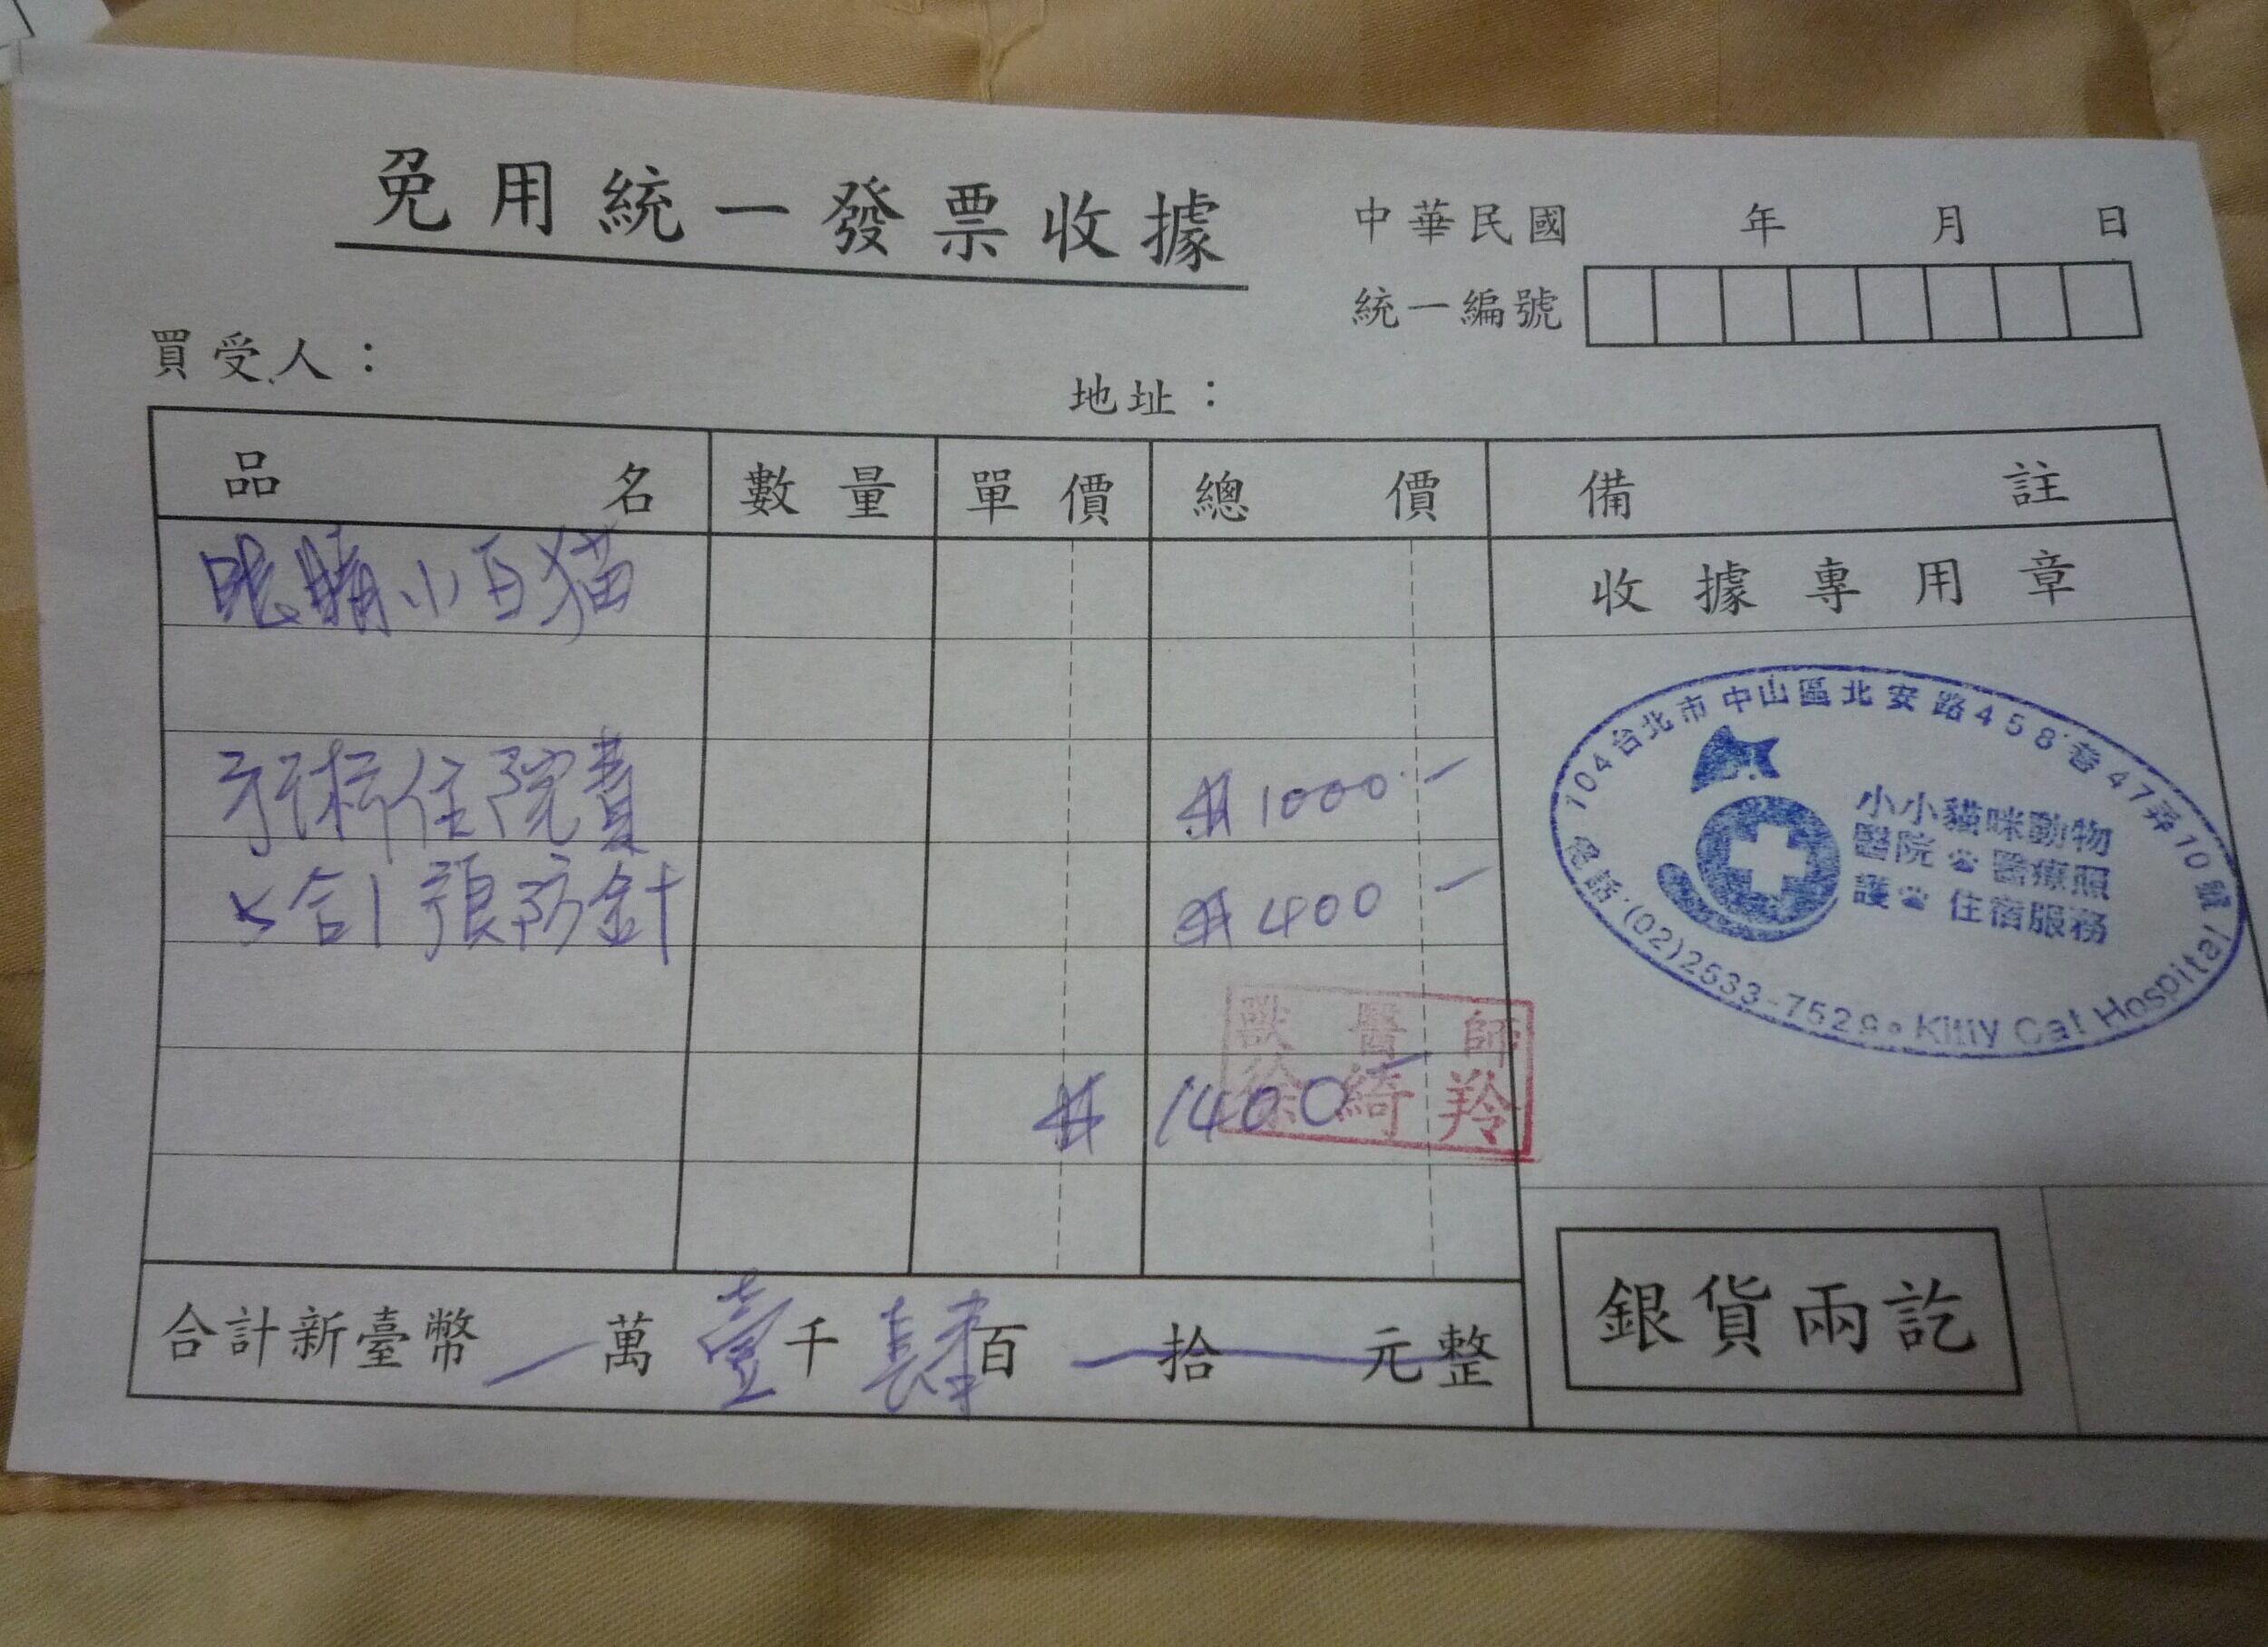 免用統一發票收據
中華民國 年 月 日
統一編號
買受人：
地址：
品名 數量 單價 總價 備註
眼睛小百猫
收據專用章
牙科住院費 $1000.-
5合1預防針 $400-
104台北市中山區北安路458巷47弄10號
小小貓咪動物
醫院 醫療照
護 住宿服務
電話:(02)2533-7529 Kitty Cat Hospital
獸醫師
徐綺羚
$1400-
合計新臺幣 萬壹千肆百 拾 元整
銀貨兩訖